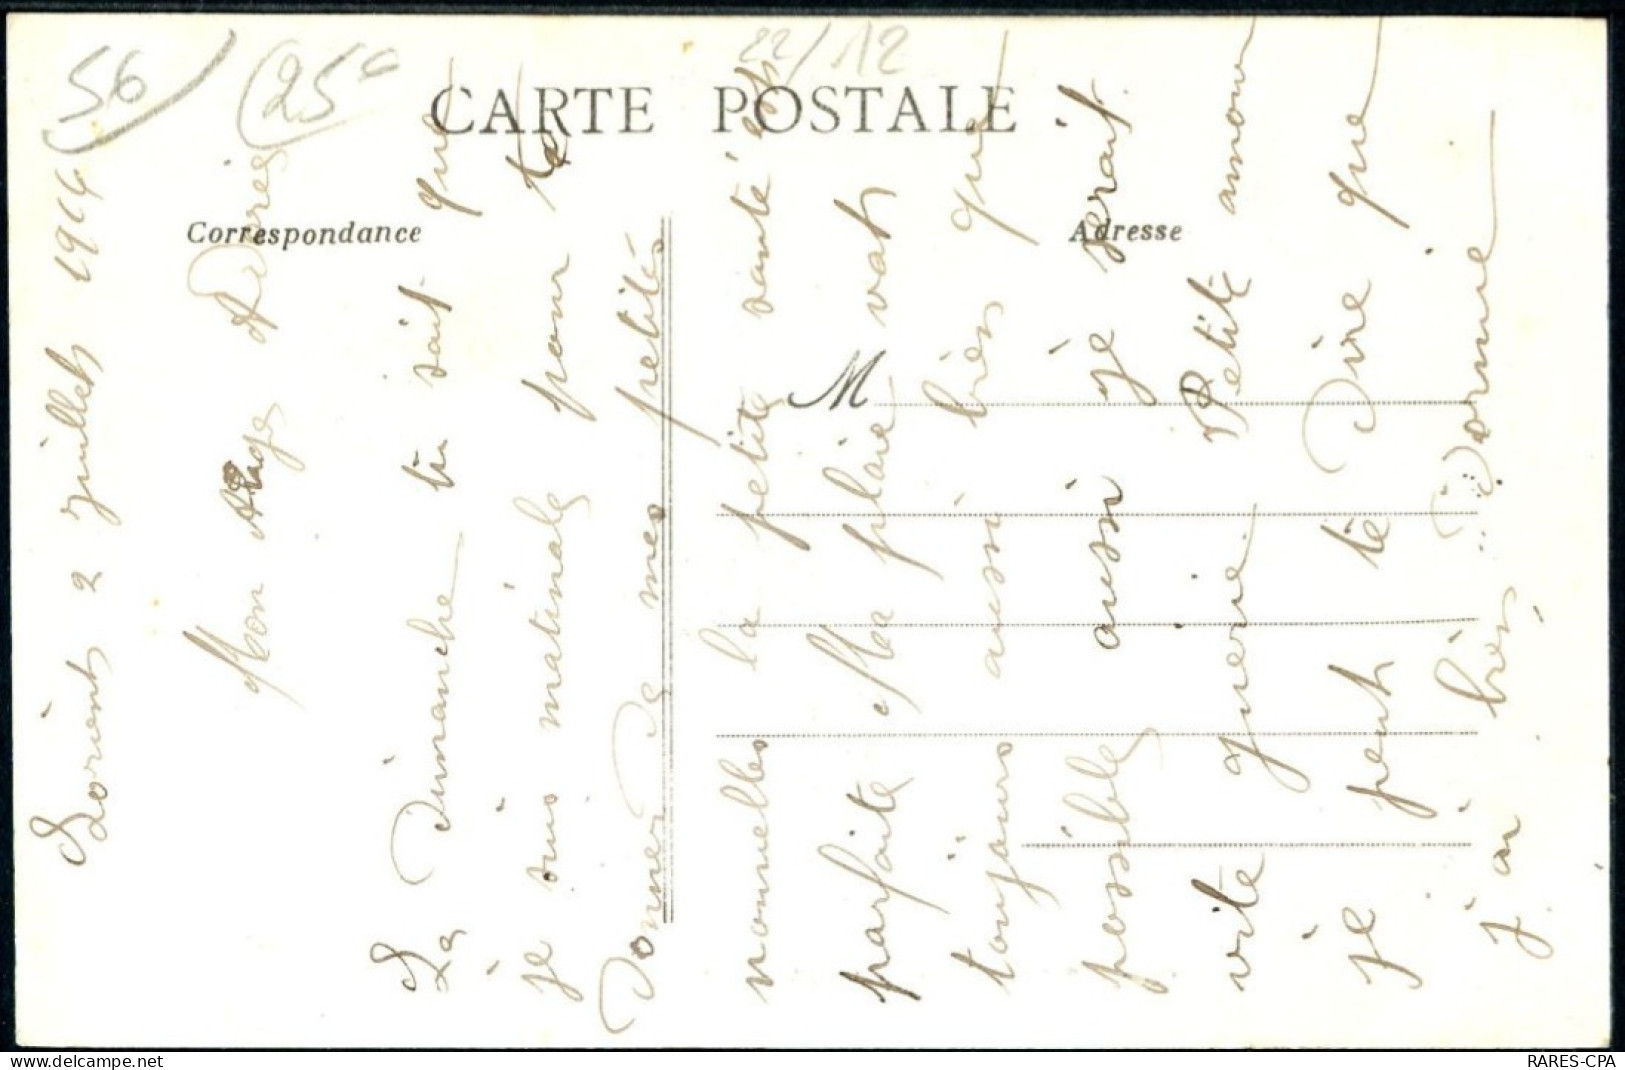 56
25€
22/12
CARTE POSTALE
Correspondance
Adresse
M
Lorient 2 juillet 1904
Mon Ange Adorée
Le Dimanche tu sait que
je suis matinale pour te
Donner De mes petités
nouvelles la petite santé est
parfaite Ma plaie vat
toujours aussi bien que
possible aussi je serait
vite guerie Petite amour
je peut te Dire que
j'ai bien Dormie
RARES-CPA